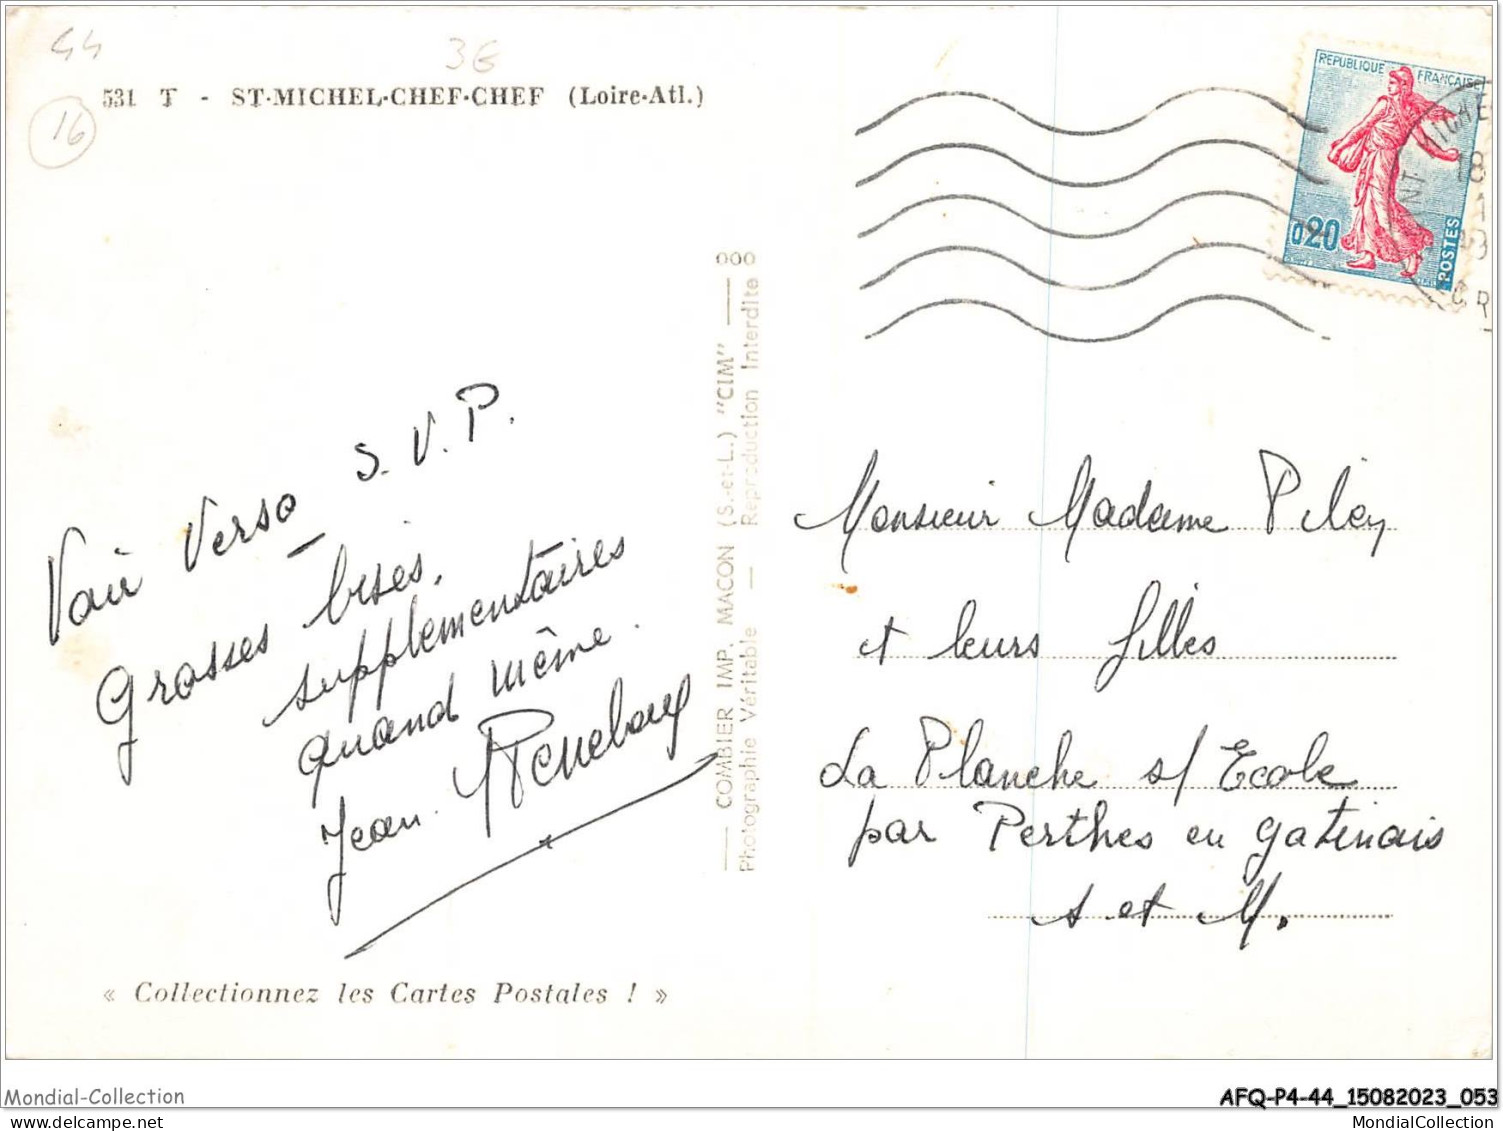 44
3€
531 T - ST-MICHEL-CHEF-CHEF (Loire-Atl.)
16
REPUBLIQUE FRANÇAISE
0,20
POSTES
18
Voir Verso S.V.P.
Grosses bises.
supplementaires
quand même.
Jean
« Collectionnez les Cartes Postales ! »
COMBIER IMP. MACON (S.-et-L.) "CIM"
Photographie Véritable — Reproduction Interdite
Monsieur Madame Piley
et leurs filles
La Planche s/ Ecole
par Perthes en gatinais
S et M.
Mondial-Collection
AFQ-P4-44_15082023_053
www.mondialcollection.com
MondialCollection